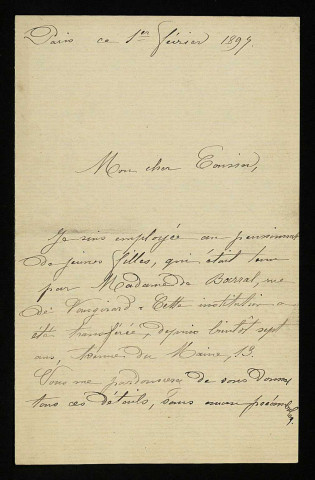 Paris ce 1er février 1897.
Mon cher Cousin,
Je suis employée au pensionnat
de jeunes filles, qui était tenu
par Madame de Barral, rue
de Vaugirard. Cette institution a
été transférée, depuis bientôt sept
ans, Avenue du Maine, 13.
Vous me pardonnerez de vous donner
tous ces détails, sans aucun préambule,